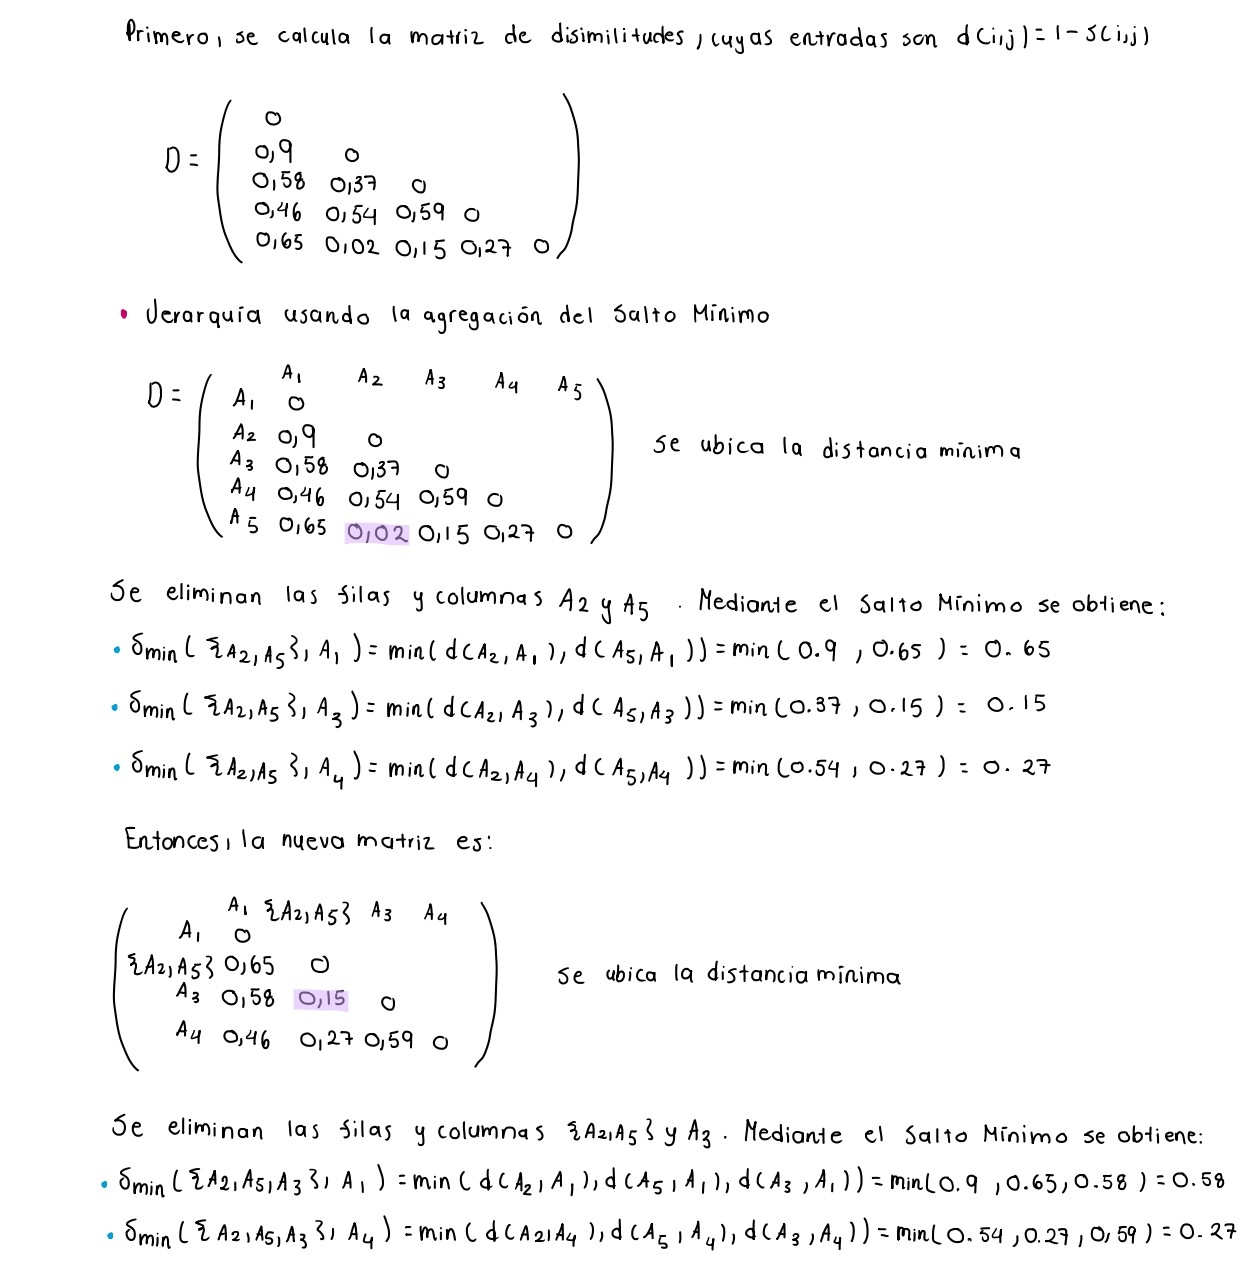 Primero, se calcula la matriz de disimilitudes, cuyas entradas son d(i,j)=1-s(i,j)
0
D = 0,9 0
0,58 0,37 0
0,46 0,54 0,59 0
0,65 0,02 0,15 0,27 0
• Jerarquía usando la agregación del Salto Mínimo
A1 A2 A3 A4 A5
D = A1 0
A2 0,9 0
A3 0,58 0,37 0
A4 0,46 0,54 0,59 0
A5 0,65 0,02 0,15 0,27 0
se ubica la distancia mínima
Se eliminan las filas y columnas A2 y A5. Mediante el Salto Mínimo se obtiene:
• δmin({A2,A5}, A1) = min(d(A2,A1), d(A5,A1)) = min(0.9, 0.65) = 0.65
• δmin({A2,A5}, A3) = min(d(A2,A3), d(A5,A3)) = min(0.37, 0.15) = 0.15
• δmin({A2,A5}, A4) = min(d(A2,A4), d(A5,A4)) = min(0.54, 0.27) = 0.27
Entonces, la nueva matriz es:
A1 {A2,A5} A3 A4
A1 0
{A2,A5} 0,65 0
A3 0,58 0,15 0
A4 0,46 0,27 0,59 0
se ubica la distancia mínima
Se eliminan las filas y columnas {A2,A5} y A3. Mediante el Salto Mínimo se obtiene:
• δmin({A2,A5,A3}, A1) = min(d(A2,A1), d(A5,A1), d(A3,A1)) = min(0.9, 0.65, 0.58) = 0.58
• δmin({A2,A5,A3}, A4) = min(d(A2,A4), d(A5,A4), d(A3,A4)) = min(0.54, 0.27, 0,59) = 0.27